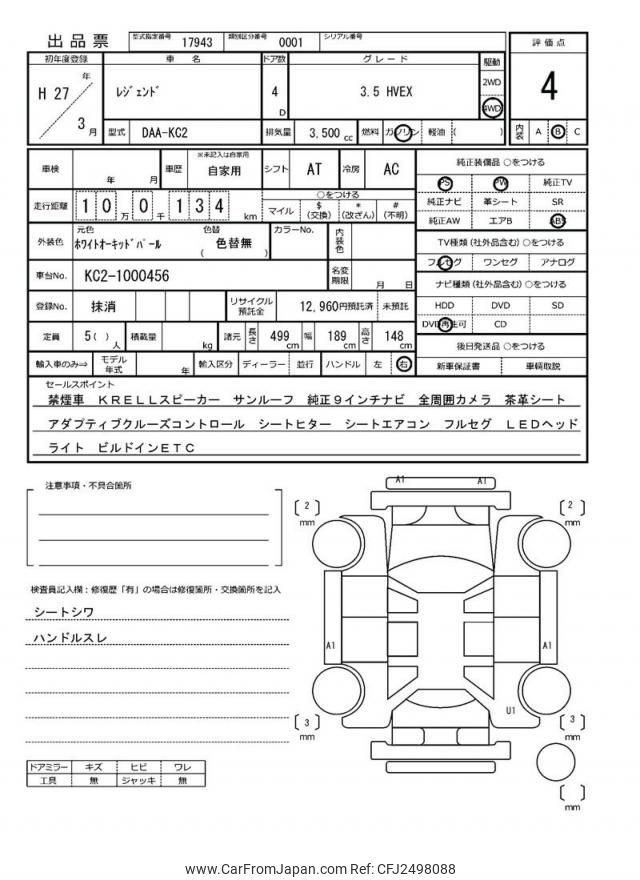 出品票
型式指定番号 17943 類別区分番号 0001 シリアル番号
評価点
4
初年度登録 車 名 ドア数 グレード 駆動
H 27 年 3 月
レジェンド
4 D
3.5 HVEX
2WD
4WD
型式 DAA-KC2 排気量 3,500 cc 燃料 ガソリン 軽油 ( )
内装 A B C
車検 年 月 車歴 ※未記入は自家用 自家用 シフト AT 冷房 AC
走行距離 1 0 万 0 千 1 3 4 km
○をつける
マイル $ (交換) * (改ざん) # (不明)
外装色 元色 ホワイトオーキッドパール 色替 色替無 ( ) カラーNo. 内装色
車台No. KC2-1000456 名変期限 月 日
登録No. 抹消 リサイクル預託金 12,960円預託済 未預託
定員 5( ) 人 積載量 kg 諸元 長さ 499 cm 幅 189 cm 高さ 148 cm
輸入車のみ⇒ モデル年式 年 輸入区分 ディーラー 並行 ハンドル 左 右
純正装備品 ○をつける
PS PW 純正TV
純正ナビ 革シート SR
純正AW エアB ABS
TV種類 (社外品含む) ○をつける
フルセグ ワンセグ アナログ
ナビ種類 (社外品含む) ○をつける
HDD DVD SD
DVD再生可 CD
後日発送品 ○をつける
新車保証書 車輌取説
セールスポイント
禁煙車 KRELLスピーカー サンルーフ 純正9インチナビ 全周囲カメラ 茶革シート
アダプティブクルーズコントロール シートヒター シートエアコン フルセグ LEDヘッド
ライト ビルドインETC
注意事項・不具合箇所
検査員記入欄:修復歴「有」の場合は修復箇所・交換箇所を記入
シートシワ
ハンドルスレ
ドアミラー キズ ヒビ ワレ
工具 無 ジャッキ 無
A1 A1
2 mm
2 mm
A1 A1
U1
3 mm
3 mm
mm
www.CarFromJapan.com Ref: CFJ2498088